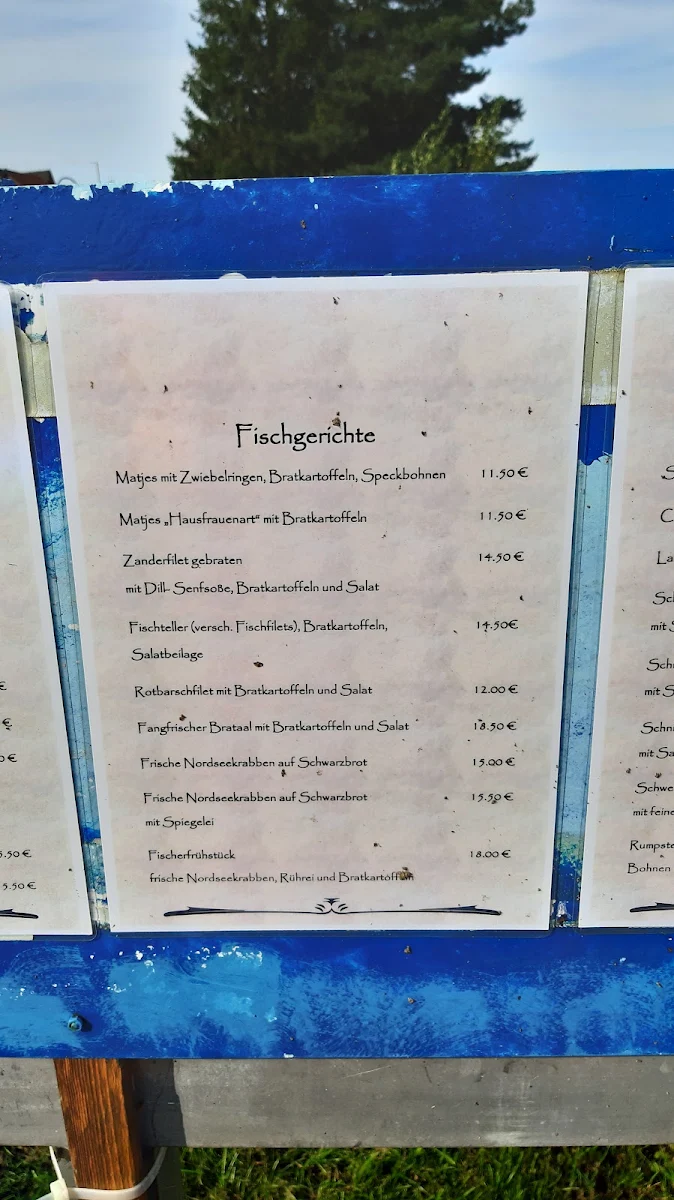 Fischgerichte
Matjes mit Zwiebelringen, Bratkartoffeln, Speckbohnen 11.50 €
Matjes „Hausfrauenart“ mit Bratkartoffeln 11.50 €
Zanderfilet gebraten 14.50 €
mit Dill- Senfsoße, Bratkartoffeln und Salat
Fischteller (versch. Fischfilets), Bratkartoffeln, 14.50€
Salatbeilage
Rotbarschfilet mit Bratkartoffeln und Salat 12.00 €
Fangfrischer Brataal mit Bratkartoffeln und Salat 18.50 €
Frische Nordseekrabben auf Schwarzbrot 15.00 €
Frische Nordseekrabben auf Schwarzbrot 15.50 €
mit Spiegelei
Fischerfrühstück 18.00 €
frische Nordseekrabben, Rührei und Bratkartoffeln
€
€
0 €
5.50 €
5.50 €
S
C
La
Sch
mit S
Schn
mit S
Schni
mit Sa
Schwe
mit feine
Rumpste
Bohnen